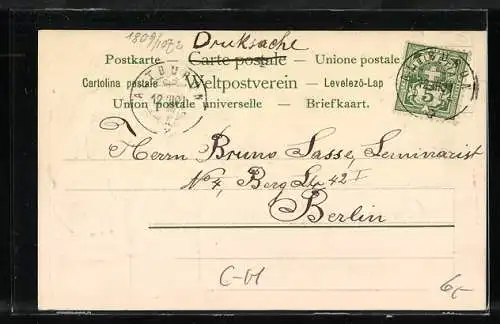 1809/1072
Drucksache
Postkarte. — Carte postale — Unione postale
Cartolina postale — Weltpostverein — Levelező-Lap
Union postale universelle. — Briefkaart.
5
Herrn Bruno Sasse, Seminarist
No 4, Berg Str 42 I
Berlin
C-VI